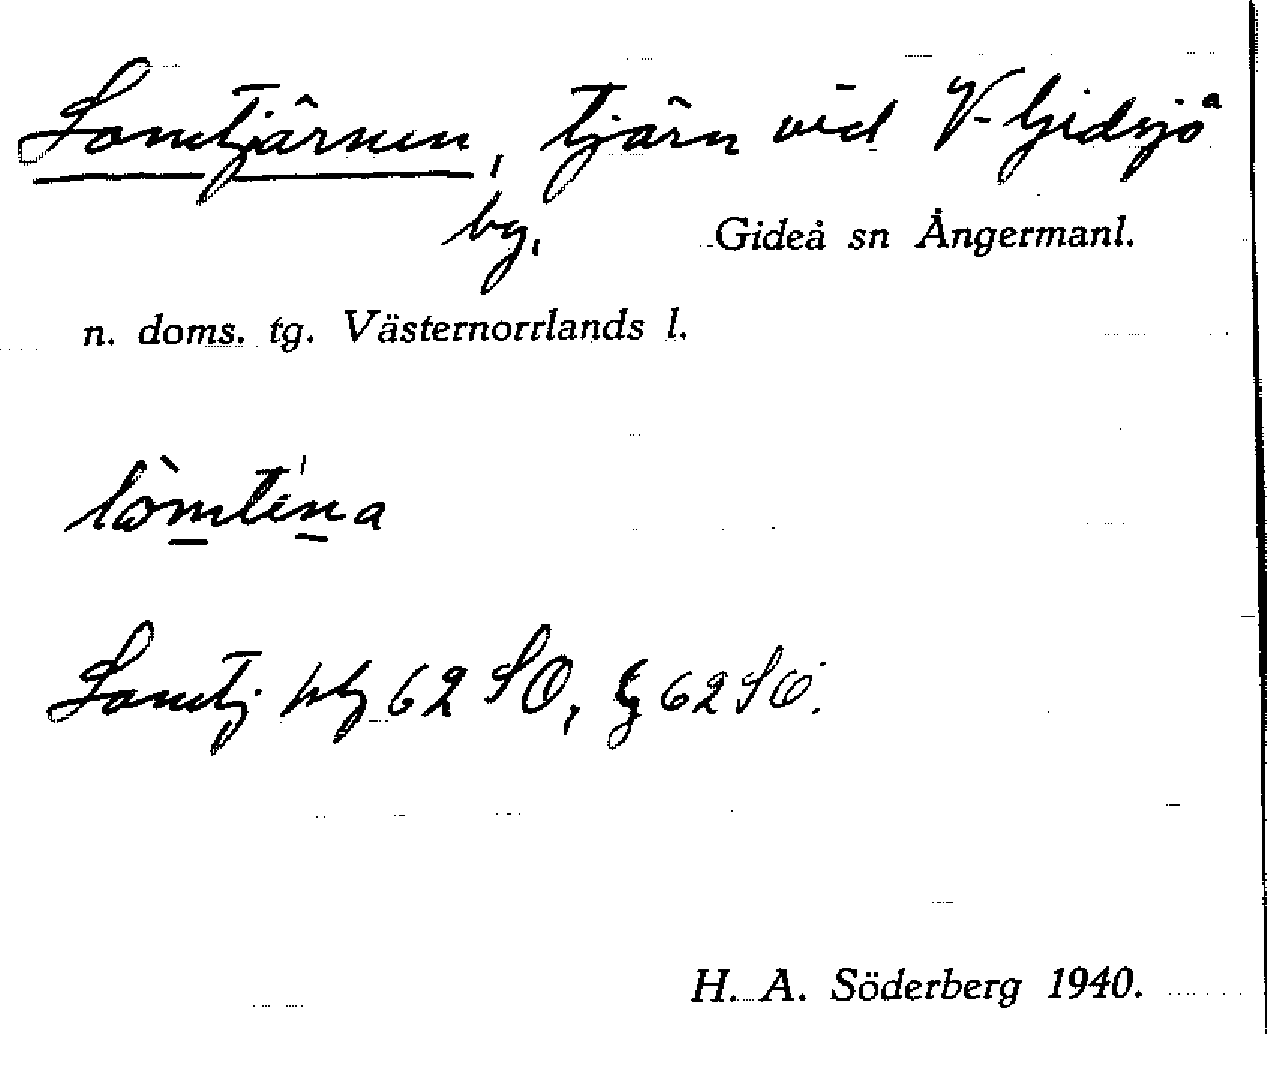 Lomtjärnen, tjärn vid V. Gidsjö
by.
Gideå sn Ångermanl.
n. doms. tg. Västernorrlands l.
lòmtina
Lomtj 62 SO, 62 SO.
H. A. Söderberg 1940.